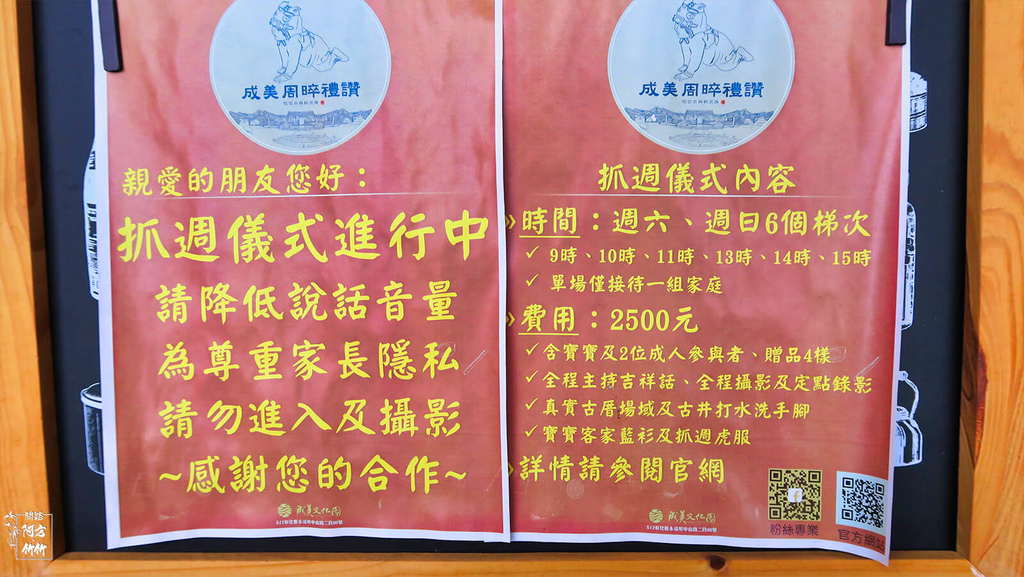 成美周晬禮讚
親愛的朋友您好：
抓週儀式進行中
請降低說話音量
為尊重家長隱私
請勿進入及攝影
~感謝您的合作~
成美文化園
成美周晬禮讚
抓週儀式內容
時間：週六、週日6個梯次
✓ 9時、10時、11時、13時、14時、15時
✓ 單場僅接待一組家庭
費用：2500元
✓含寶寶及2位成人參與者、贈品4樣
✓全程主持吉祥話、全程攝影及定點錄影
✓真實古厝場域及古井打水洗手腳
✓寶寶客家藍衫及抓週虎服
詳情請參閱官網
成美文化園
粉絲專業
官方網站
阿方